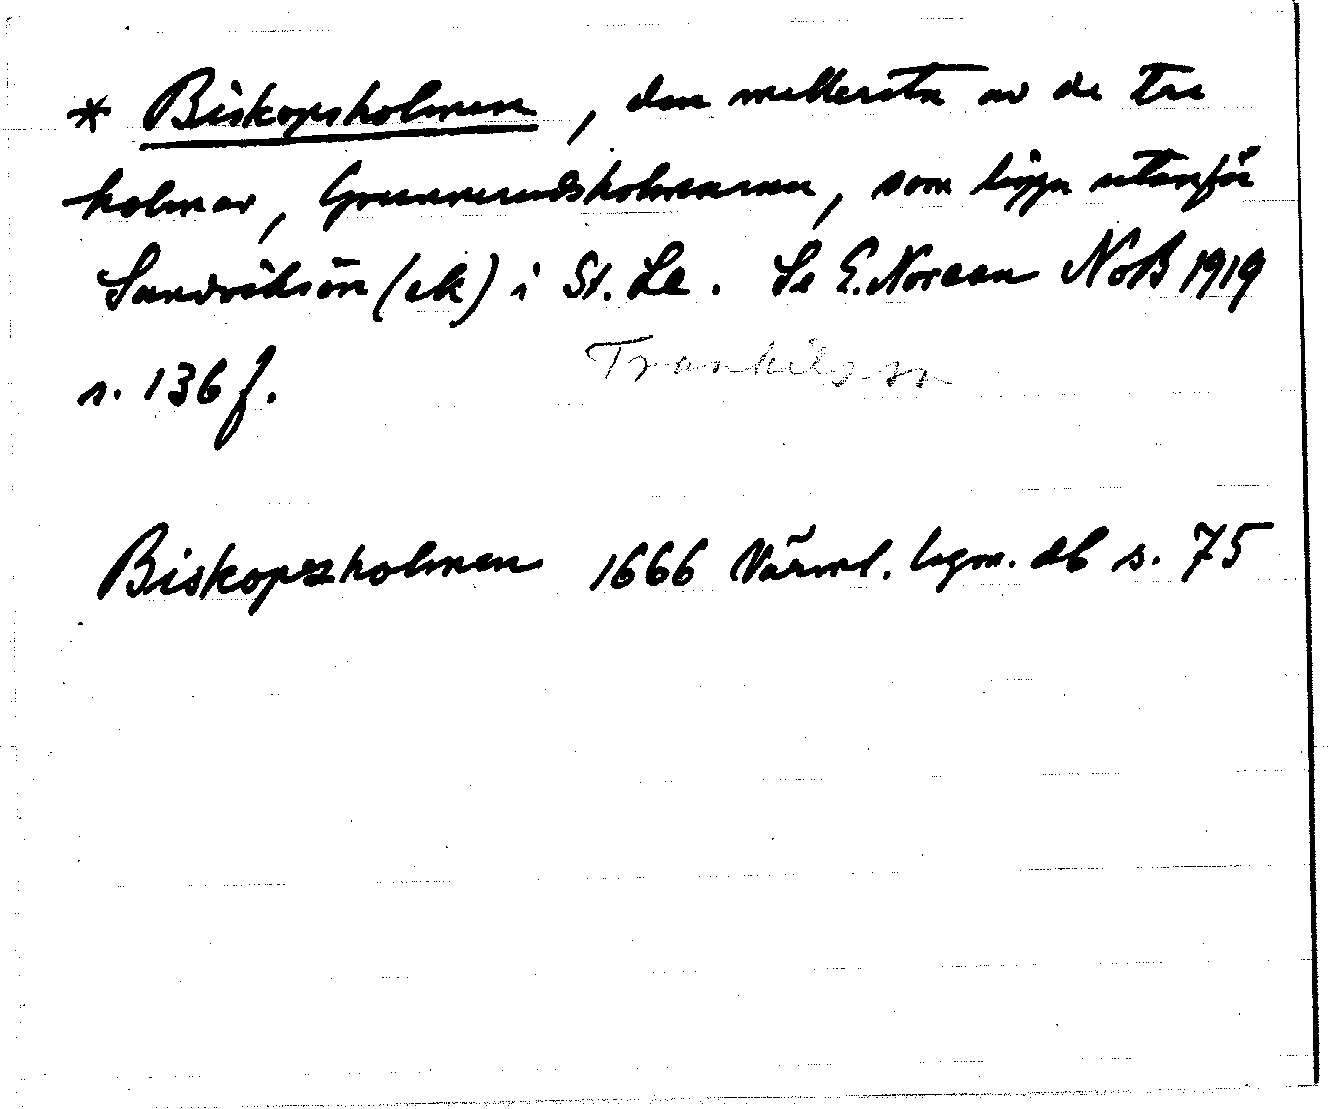 * Biskopsholmen, den mellersta av de tre
holmar, Grunnerudsholmarna, som ligga utanför
Sandviksön (ek) i St. Le. Se E. Noreen NoB 1919
s. 136 f. Trankilsson
Biskopzholmen 1666 Värml. lagm. db s. 75